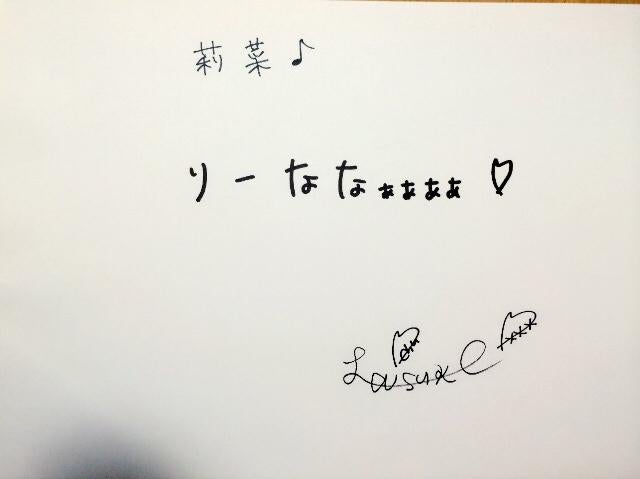 莉菜♪
りーななぁぁぁぁ♡